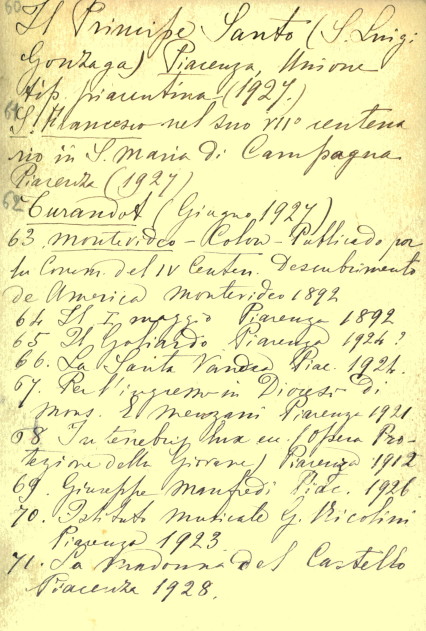 60 Il Principe Santo (S. Luigi
Gonzaga) Piacenza, Unione
tip. piacentina (1927.)
61 S. Francesco nel suo VII° centena
rio in S. Maria di Campagna
Piacenza (1927)
62 Turandot (Giugno 1927)
63 Montevideo - Colon - Publicado por
la Comm. del IV Centen. Descubrimento
de America Montevideo 1892
64 Il I maggio Piacenza 1892
65 Il Goliardo Piacenza 1924?
66. La Santa Piac. 1924.
67. Per l'ingresso in Diocesi di
mons. E. Menzani Piacenza 1921
68. In tenebris lux (Opera Pro-
tezione della Giovane) Piacenza 1912
69. Giuseppe Manfredi Piac. 1926
70. Istituto musicale G. Nicolini
Piacenza 1923
71. La Madonna del Castello
Piacenza 1928.